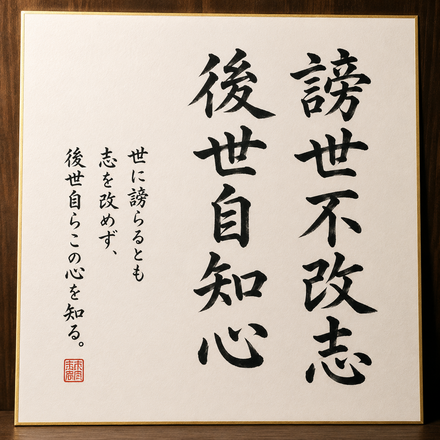 謗世不改志
後世自知心
世に謗らるとも
志を改めず、
後世自らこの心を知る。